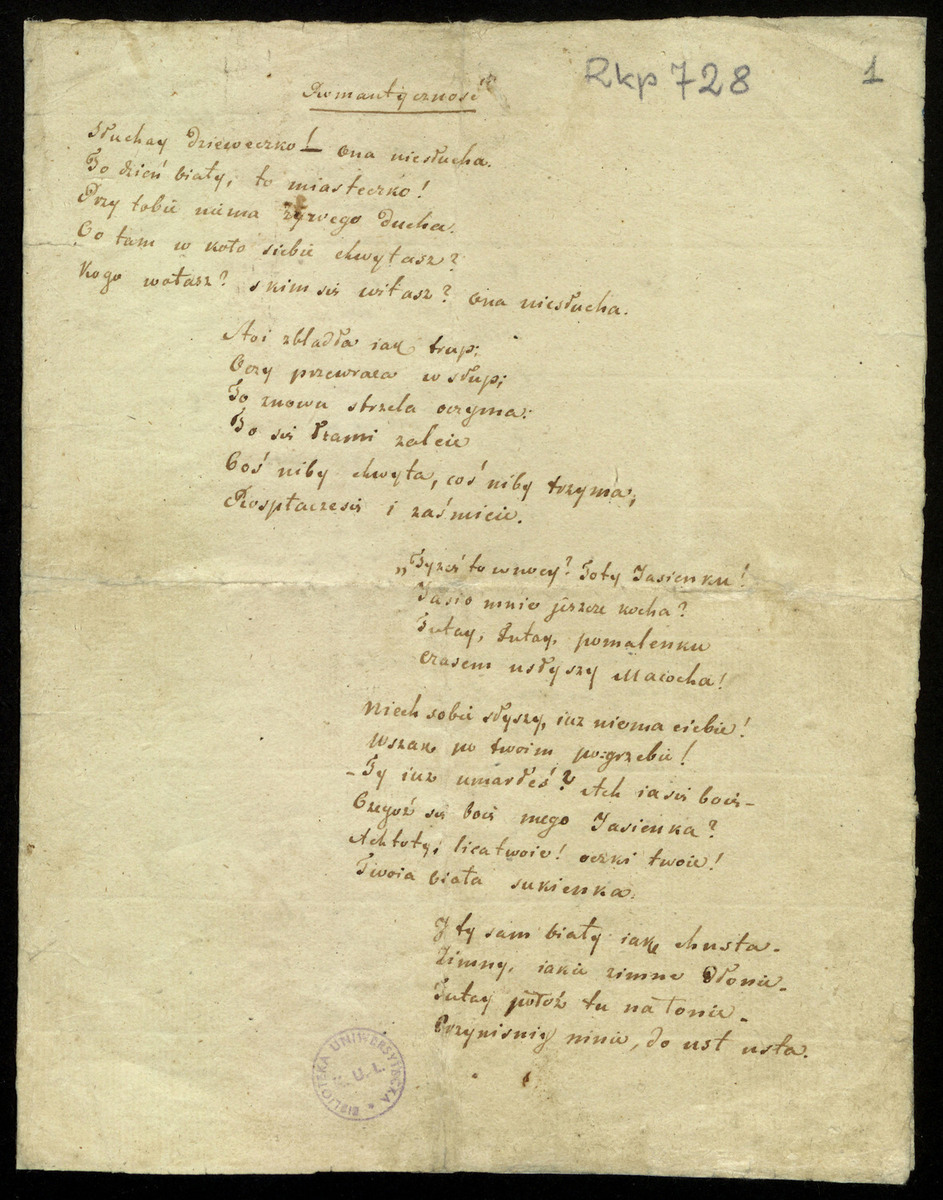 Rkp 728
1
Romantyczność
Słuchay Dzieweczko! – ona niesłucha.
To dzień biały, to miasteczko!
Przy tobie niema żywego Ducha.
Co tam w koło siebie chwytasz?
Kogo wołasz? skim się witasz? ona niesłucha.
Aoi zbladła iak trup;
Oczy przewraca w słup;
To znowu strzela oczyma:
To się łzami zaleie
Coś niby chwyta, coś niby trzyma;
Rospłaczesię i zaśmieie.
„Tyżeś to w nocy? Toty Jasieńku!
Jasio mnie jeszcze kocha?
Tutay, Tutay, pomaleńku
czasem usłyszy Macocha!
Niech sobie słyszy, iuż niema ciebie!
Wszak po twoim pogrzebie!
– Ty iuż umarłeś? Ach ia się boię –
Czegoż się boię mego Jasieńka?
Ach toty, lica twoie! oczki twoie!
Twoia biała sukienka.
J ty sam biały iak chusta –
Zimny, iakie zimne Dłonie –
Tutay położ tu na łonie –
Przyciśniy mnie, do ust usta.
BIBLIOTEKA UNIWERSYTECKA
K.U.L.